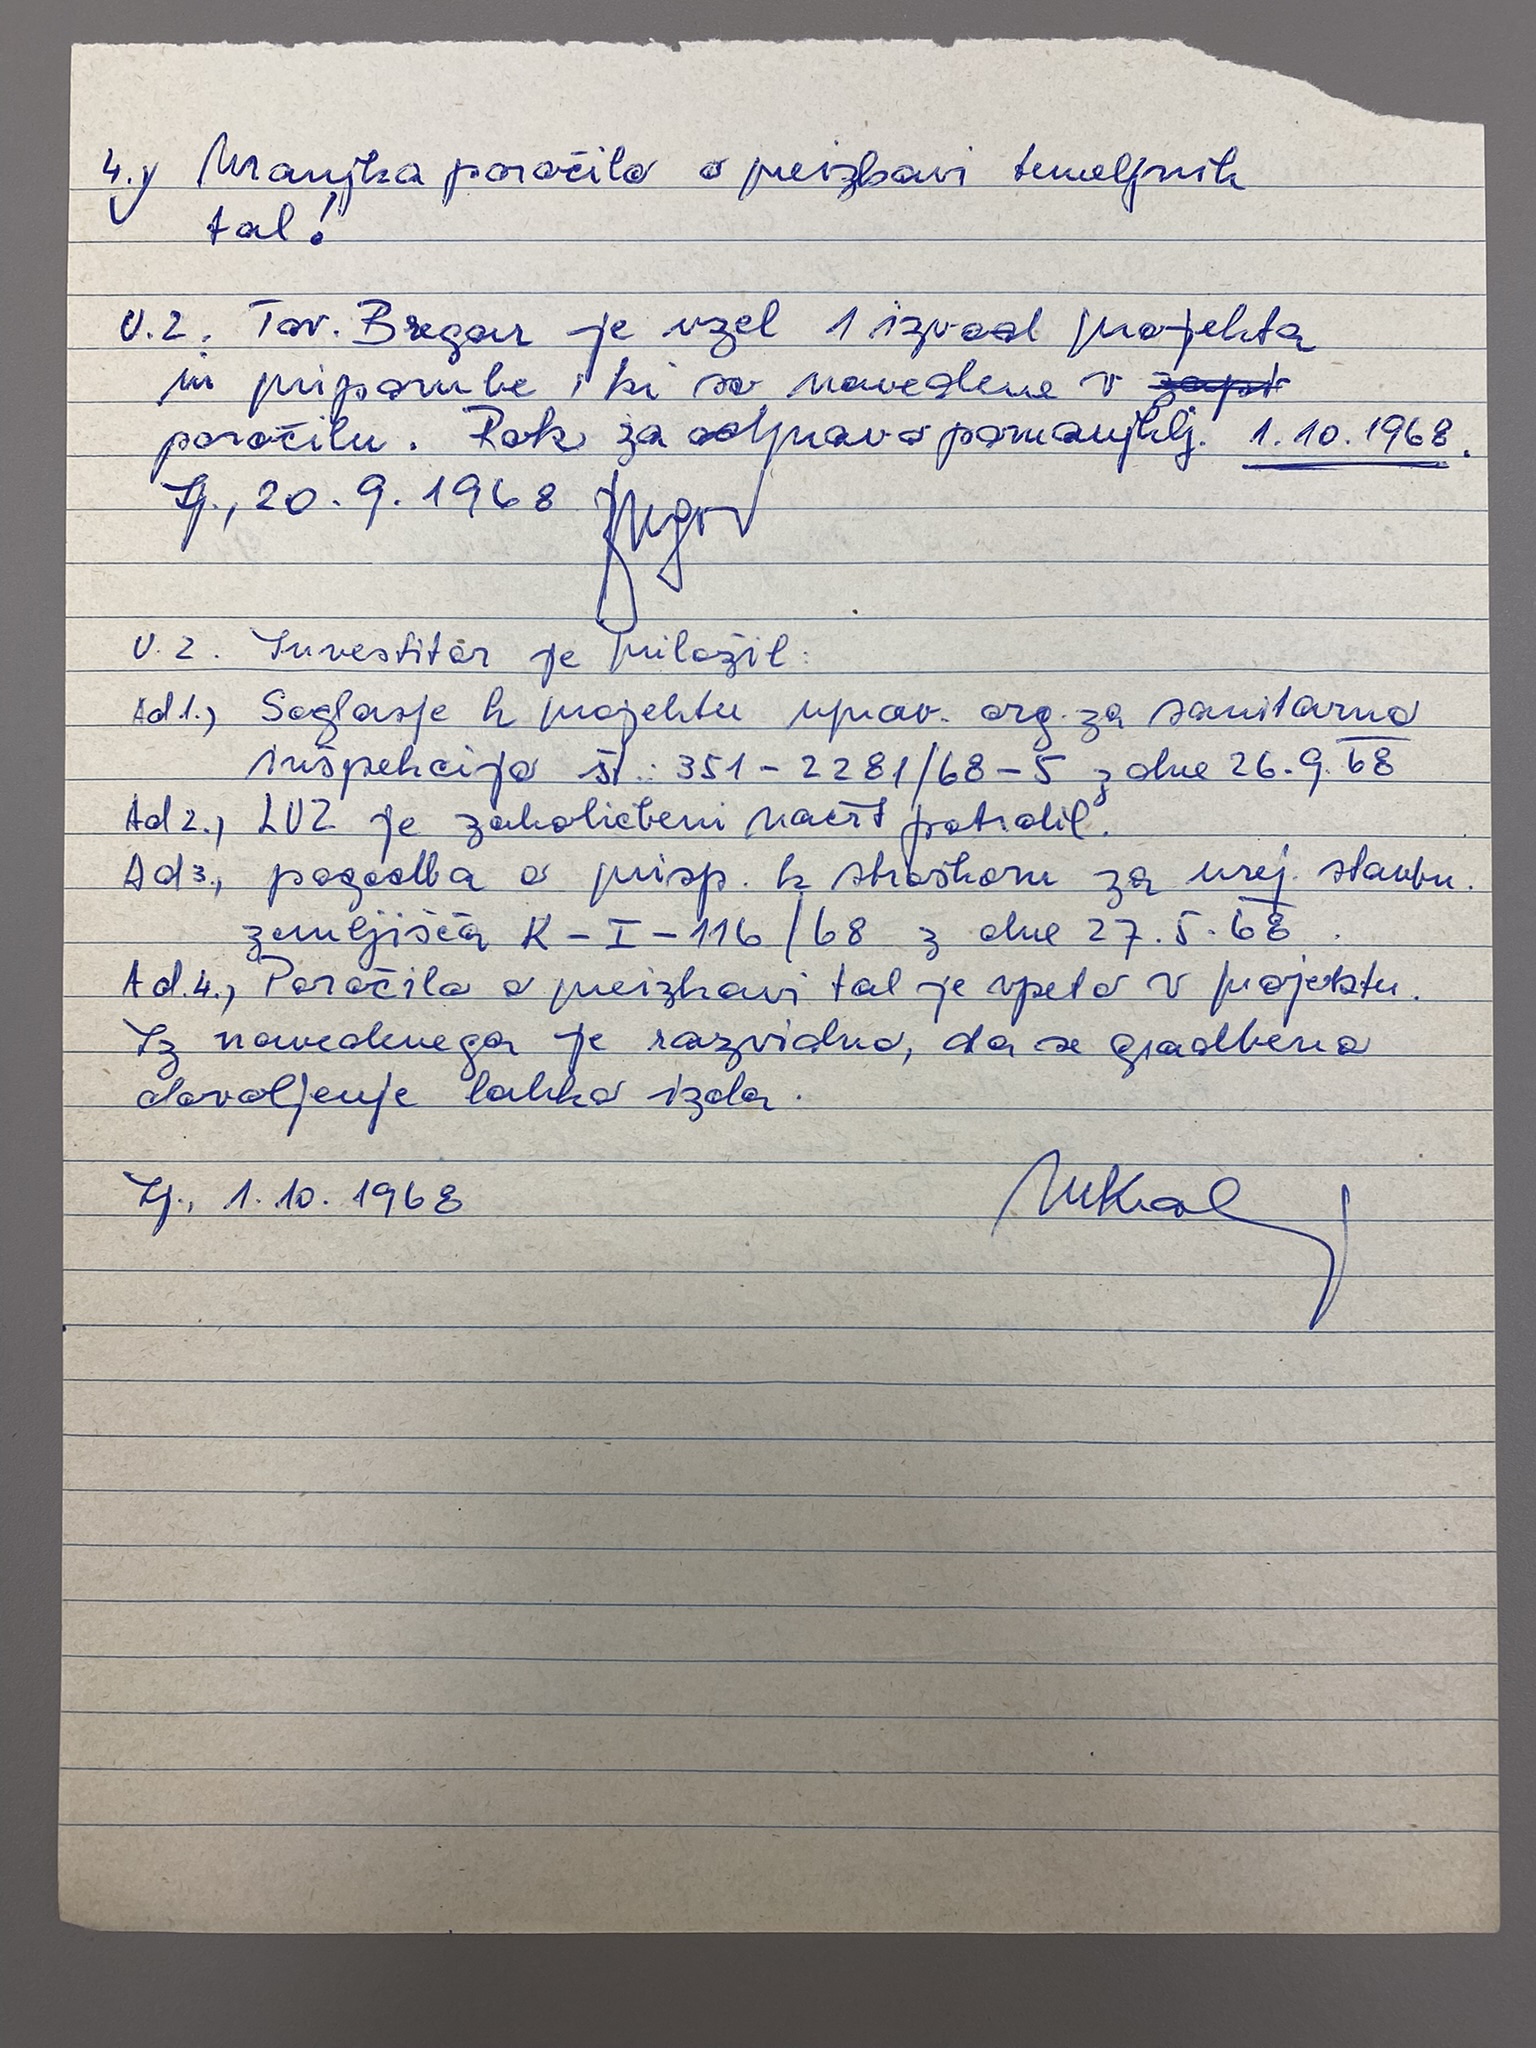 4.) Manjka poročilo o preizkavi temeljnih
tal!
U.z. Tov. Bregar je vzel 1 izvod projekta
in pripombe, ki so navedene v
poročilu. Rok za odpravo pomanjklj. 1.10.1968.
Lj., 20.9.1968
U.z. Investitor je priložil:
Ad 1., Soglasje k projektu uprav. org. za sanitarno
inšpekcijo št.: 351-2281/68-5 z dne 26.9.68
Ad 2., LUZ je zakoličbeni načrt potrdil.
Ad 3., pogodba o prisp. k stroškom za urej. stavbn.
zemljišča K-I-116/68 z dne 27.5.68.
Ad.4., Poročilo o preizkavi tal je vpeto v projektu.
Iz navedenega je razvidno, da se gradbeno
dovoljenje lahko izda.
Lj., 1.10.1968